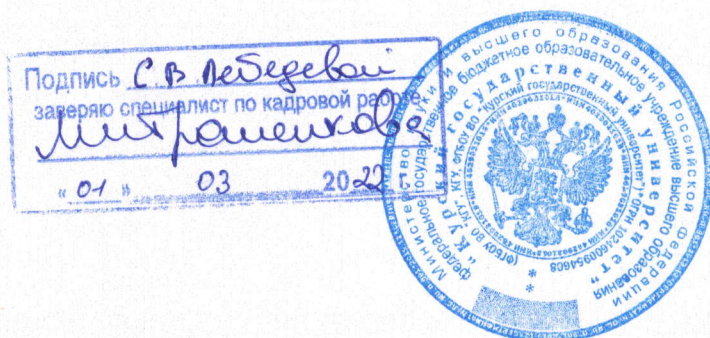 Подпись С.В. Лебедевой
заверяю специалист по кадровой работе
Митрошенкова
« 01 » 03 2022 г.
Министерство науки и высшего образования Российской Федерации
федеральное государственное бюджетное образовательное учреждение высшего образования
"Курский государственный университет"
(ФГБОУ ВО "КГУ", КГУ, ФГБОУ ВО "Курский государственный университет") ОГРН 1024600954608